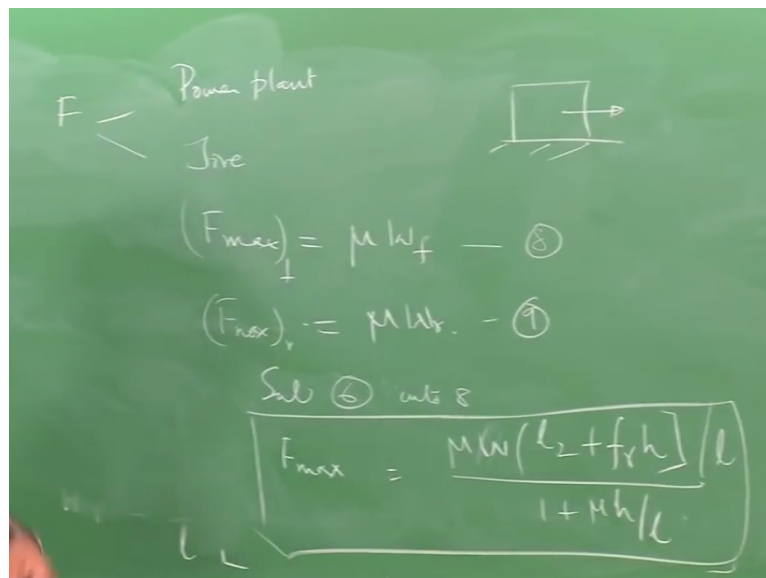 Power plant
F <
Tire
(Fmax)f = μWf — ⑧
(Fmax)r = μWr. - ⑨
Sub ⑥ into 8
Fmax = μW(l2 + frh]/l
1 + μh/l